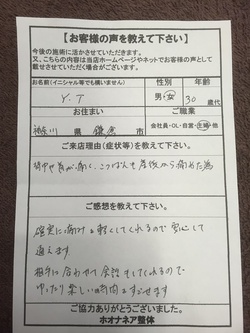 【お客様の声を教えて下さい】
今後の施術に活かさせていただきます。
又、こちらの内容は当店ホームページやネットでお客様の声として
載せさせていただく場合がございます。
お名前(イニシャル等でも構いません) 性別 年齢
Y.T 男・女 30歳代
お住まい ご職業
神奈川県 鎌倉市 会社員・OL・自営・主婦・他
ご来店理由(症状等)を教えて下さい。
背中や肩が痛く、こつばんも産後から痛めた為
ご感想を教えて下さい。
確実に痛みを軽くしてくれるので安心して
通えます
相手に合わせて会話をしてくれるので
ゆったり楽しい時間をすごせます
ご協力ありがとうございました。
ホオナネア整体